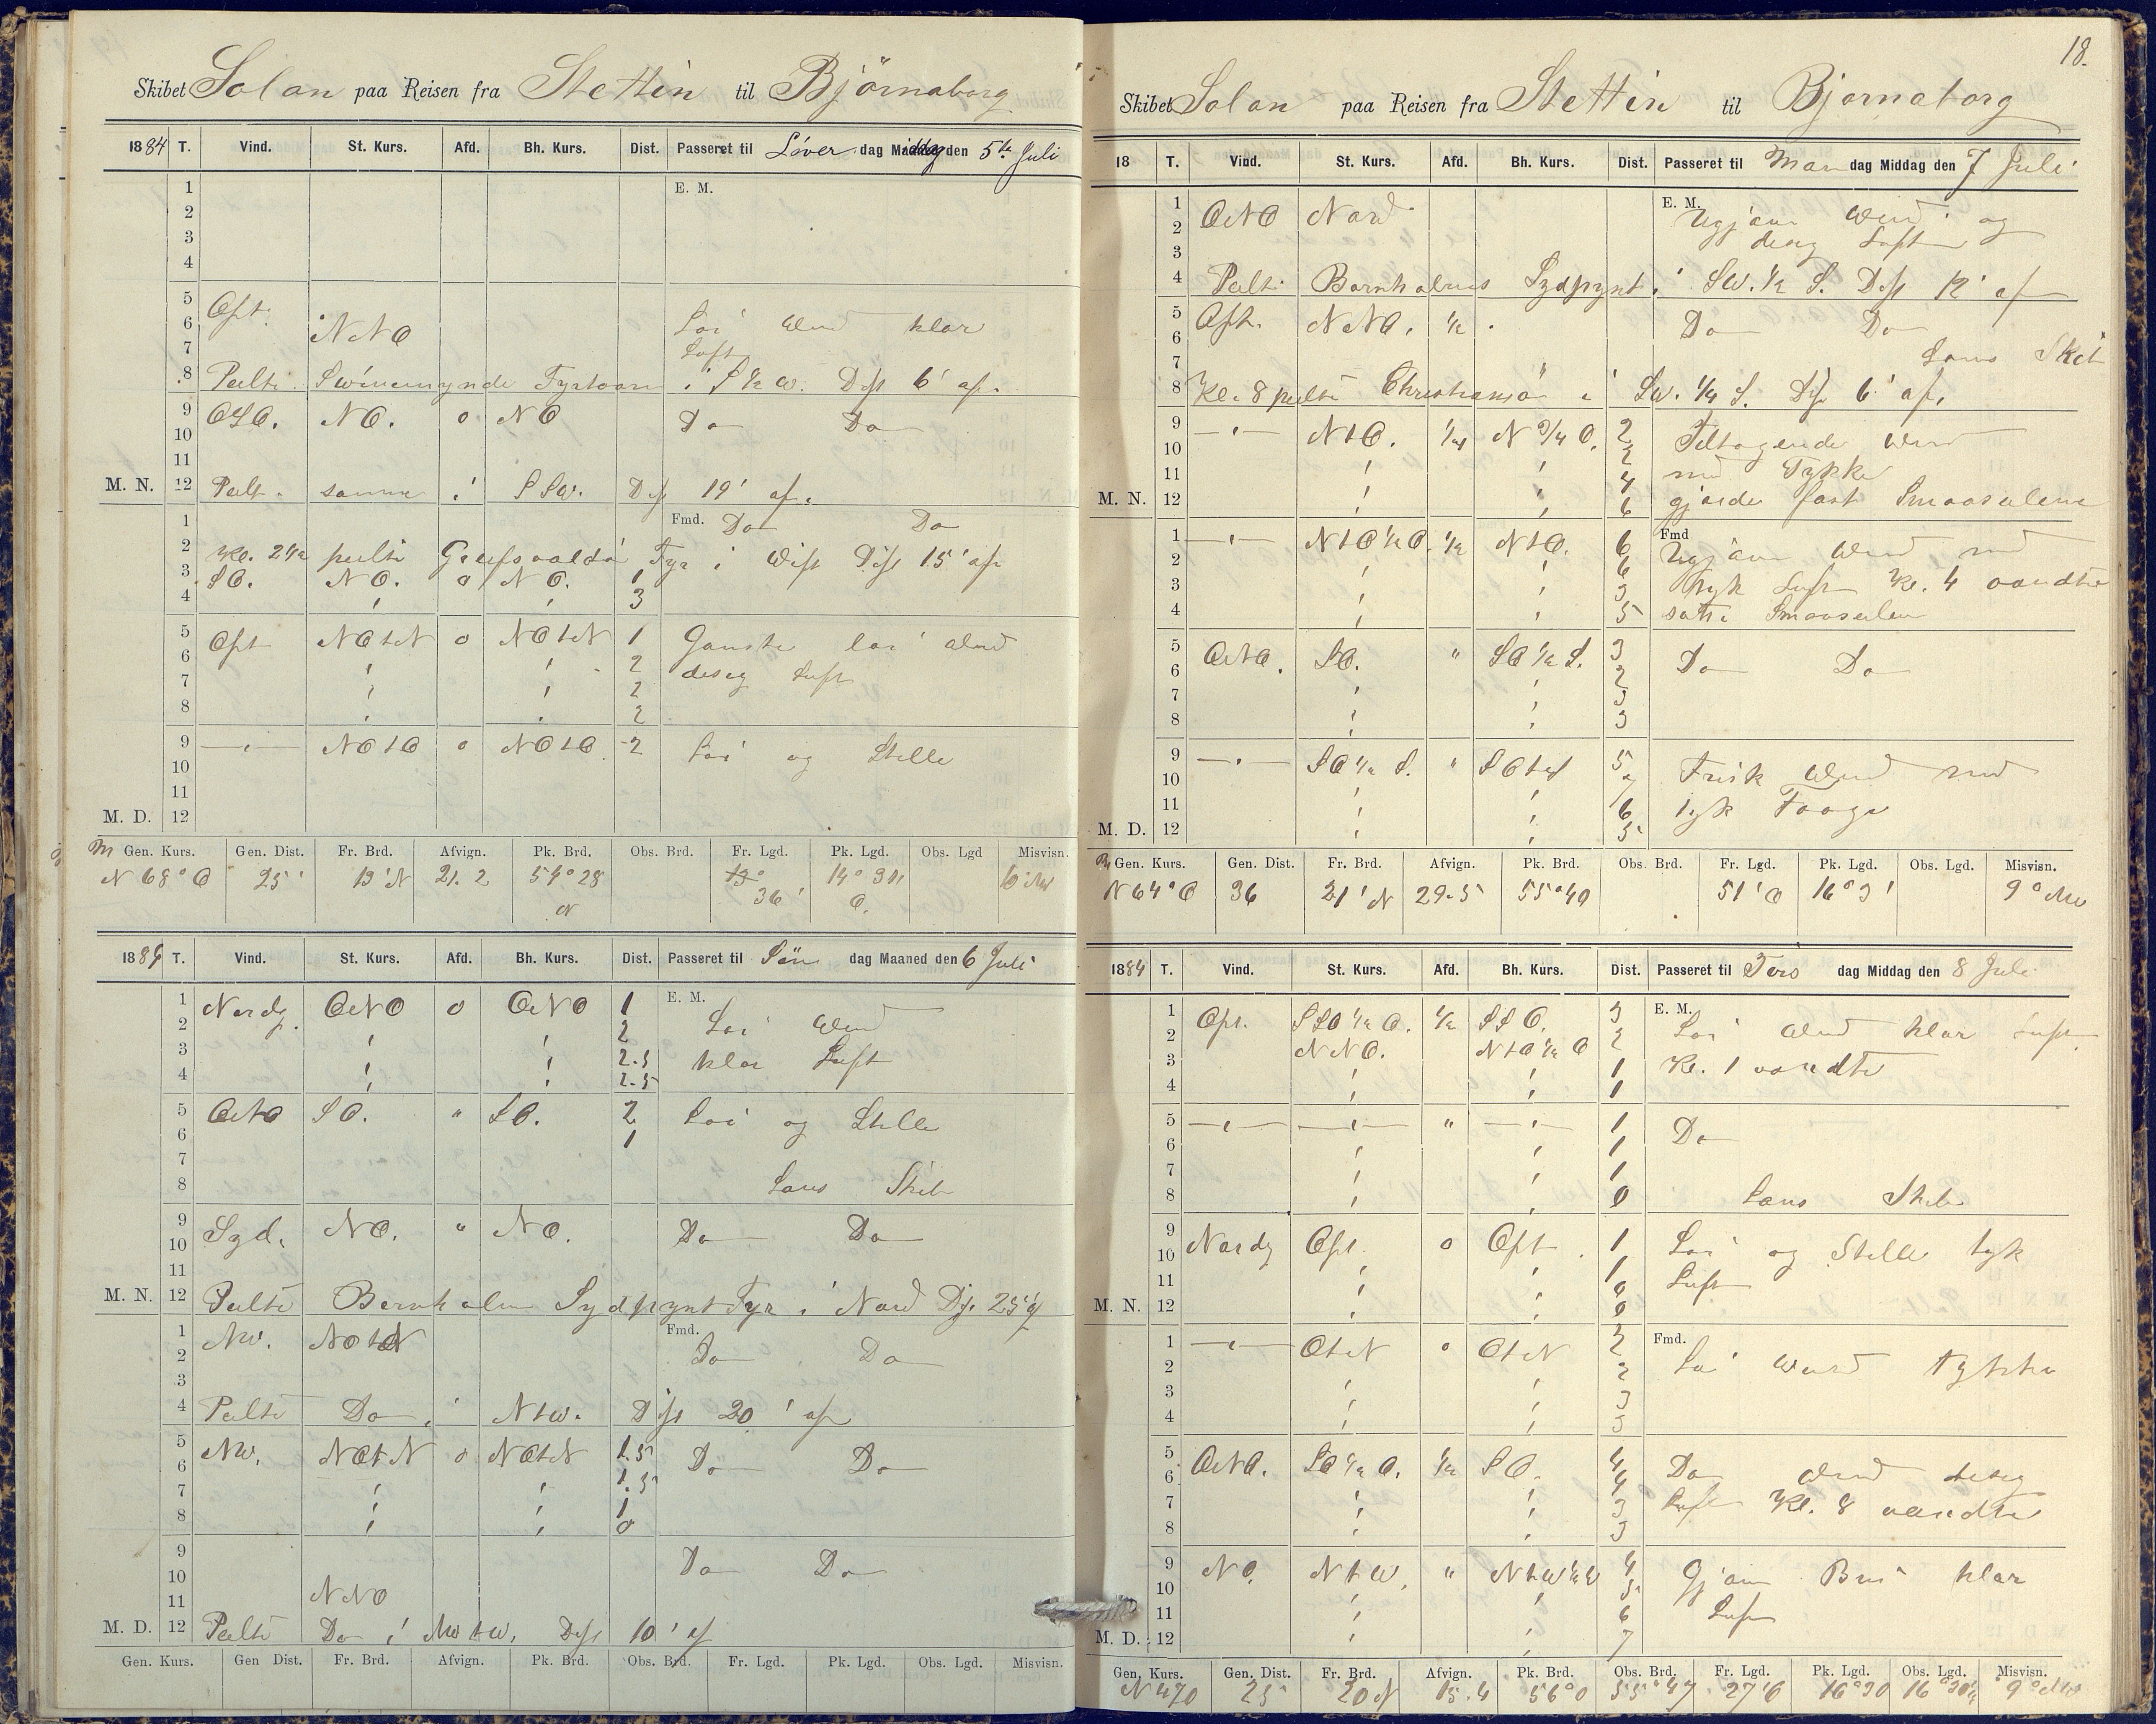 Skibet Solon paa Reisen fra Stettin til Björnaborg
1884 T. Vind. St. Kurs. Afd. Bh. Kurs. Dist. Passeret til Löver dag den 5te Juli
1 E. M.
2
3
4
5 Öst
6 NNO Löi Wind klar
7 Luft
8 Peilte Swinemynde Fyrtaarn i S 1/2 W. Dist 6' af.
9 OSO. NO. 0 NO Do Do
10
11
M. N. 12 Peilt samme i SSW. Dist 19' af.
1 Fmd. Do Do
2 Kl. 2 1/2 peilte Greifsvaldö Fyr i West Dist 15' af
3 SO. NO. 0 NO. 1
4 " " 3
5 Öst NOtN 0 NOtN 1 Ganske löi Wind
6 " " 2 diseg Luft
7 " " 2
8 " " 2
9 — " — NOtO 0 NOtO 2 Löi og Stille
10
11
M. D. 12
Gen. Kurs. Gen. Dist. Fr. Brd. Afvign. Pk. Brd. Obs. Brd. Fr. Lgd. Pk. Lgd. Obs. Lgd Misvisn.
N 68° O 25' 13' N 21.2 54° 28 36' 14°
N O.
1884 T. Vind. St. Kurs. Afd. Bh. Kurs. Dist. Passeret til Sön dag Maaned den 6 Juli
1 Nordg. ONO 0 ONO 1 E. M.
2 " " 2 Löi Wind
3 " " 2.5 klar Luft
4 " " 2.5
5 ONO SO. " SO. 2 Löi og Stille
6 1
7
8 Lens Skib
9 Syd. NO. " NO. Do Do
10
11
M. N. 12 Peilte Bornholm Sydpynt Fyr i Nord Dis. 25' af
1 NW. NOtN Fmd.
2 Do Do
3
4 Peilte Do i NtW. Dist 20' af
5 NW. NOtN 0 NOtN 1.5 Do Do
6 " " 1.5
7 " " 1
8 " " 0
9 Do Do
10
11 NNO
M. D. 12 Peilte Do i NWtW. Dist 10' af
Gen. Kurs. Gen Dist. Fr. Brd. Afvign. Pk. Brd. Obs. Brd. Fr. Lgd. Pk. Lgd. Obs. Lgd. Misvisn.
18.
Skibet Solon paa Reisen fra Stettin til Bjornaborg
18 T. Vind. St. Kurs. Afd. Bh. Kurs. Dist. Passeret til Man dag Middag den 7 Juli
1 ONO Nord E. M. Ugjävn Wind og
2 diseg Luft
3
4 Peilt Bornholms Sydpynt i SW. 1/2 S. Dist 12' af
5 Öst. NNO. 1/2 Do Do
6
7 Lens Skib
8 Kl. 8 peilte Christiansö i SW. 1/4 S. Dis. 6' af.
9 — " — NtO. 1/4 N 3/4 O. 2 Tiltagende Wind
10 " " 2 med Tykke
11 " " 4
M. N. 12 " " 6 gjorde fast Smaaseilene
1 — " — NtO 1/2 O. 1/2 NtO. 6 Fmd Ugjävn Wind med
2 " " 6
3 " " 3 tyk Luft Kl. 4 vandte
4 " " 5 satte Smaaseilen
5 ONO. SO. " SO 1/2 S. 3
6 " " 2 Do Do
7 " " 3
8 " " 3
9 — " — SO 1/2 S. " SOtS 5 Frisk Wind med
10 " " 7
11 " " 6 tyk Taage
M. D. 12 " " 5
Gen. Kurs. Gen. Dist. Fr. Brd. Afvign. Pk. Brd. Obs. Brd. Fr. Lgd. Pk. Lgd. Obs. Lgd. Misvisn.
N 64° O 36 21' N 29.5 55° 40 51' O 16° 3' 9° NW
1884 T. Vind. St. Kurs. Afd. Bh. Kurs. Dist. Passeret til Tirs dag Middag den 8 Juli
1 Öst. SSO 1/2 O. 1/2 SSO. 3 E. M. Löi Wind klar Luft
2 NNO. NtO 1/2 O 2
3 " " 1 Kl. 1 vandte
4 " " 1
5 — " — — " — " — " — 1 Do
6 " " 1
7 " " 1
8 " " 0 Lens Skib
9 Nordg Öst. 0 Öst. 1 Löi og Stille tyk
10 " " 1 Luft
11 " " 0
M. N. 12 " " 0
1 — " — OtN 0 OtN 2 Fmd. Löi Wind tykke
2 " " 2
3 " " 3
4 " " 3
5 ONO. SO 1/2 O. 1/2 SO. 4 Do Wind diseg
6 " " 4
7 " " 3 Luft Kl. 8 vandte
8 " " 3
9 NO. NtW. " NtW 1/2 W 4 Gjävn Bris klar
10 " " 5
11 " 6 Luft
M. D. 12 " " 7
Gen. Kurs. Gen. Dist. Fr. Brd. Afvign. Pk. Brd. Obs. Brd. Fr. Lgd. Pk. Lgd. Obs. Lgd. Misvisn.
N 47 O 25 20 N 15.4 56° 0 55° 47 27' O 16° 30 16° 30 9° NW